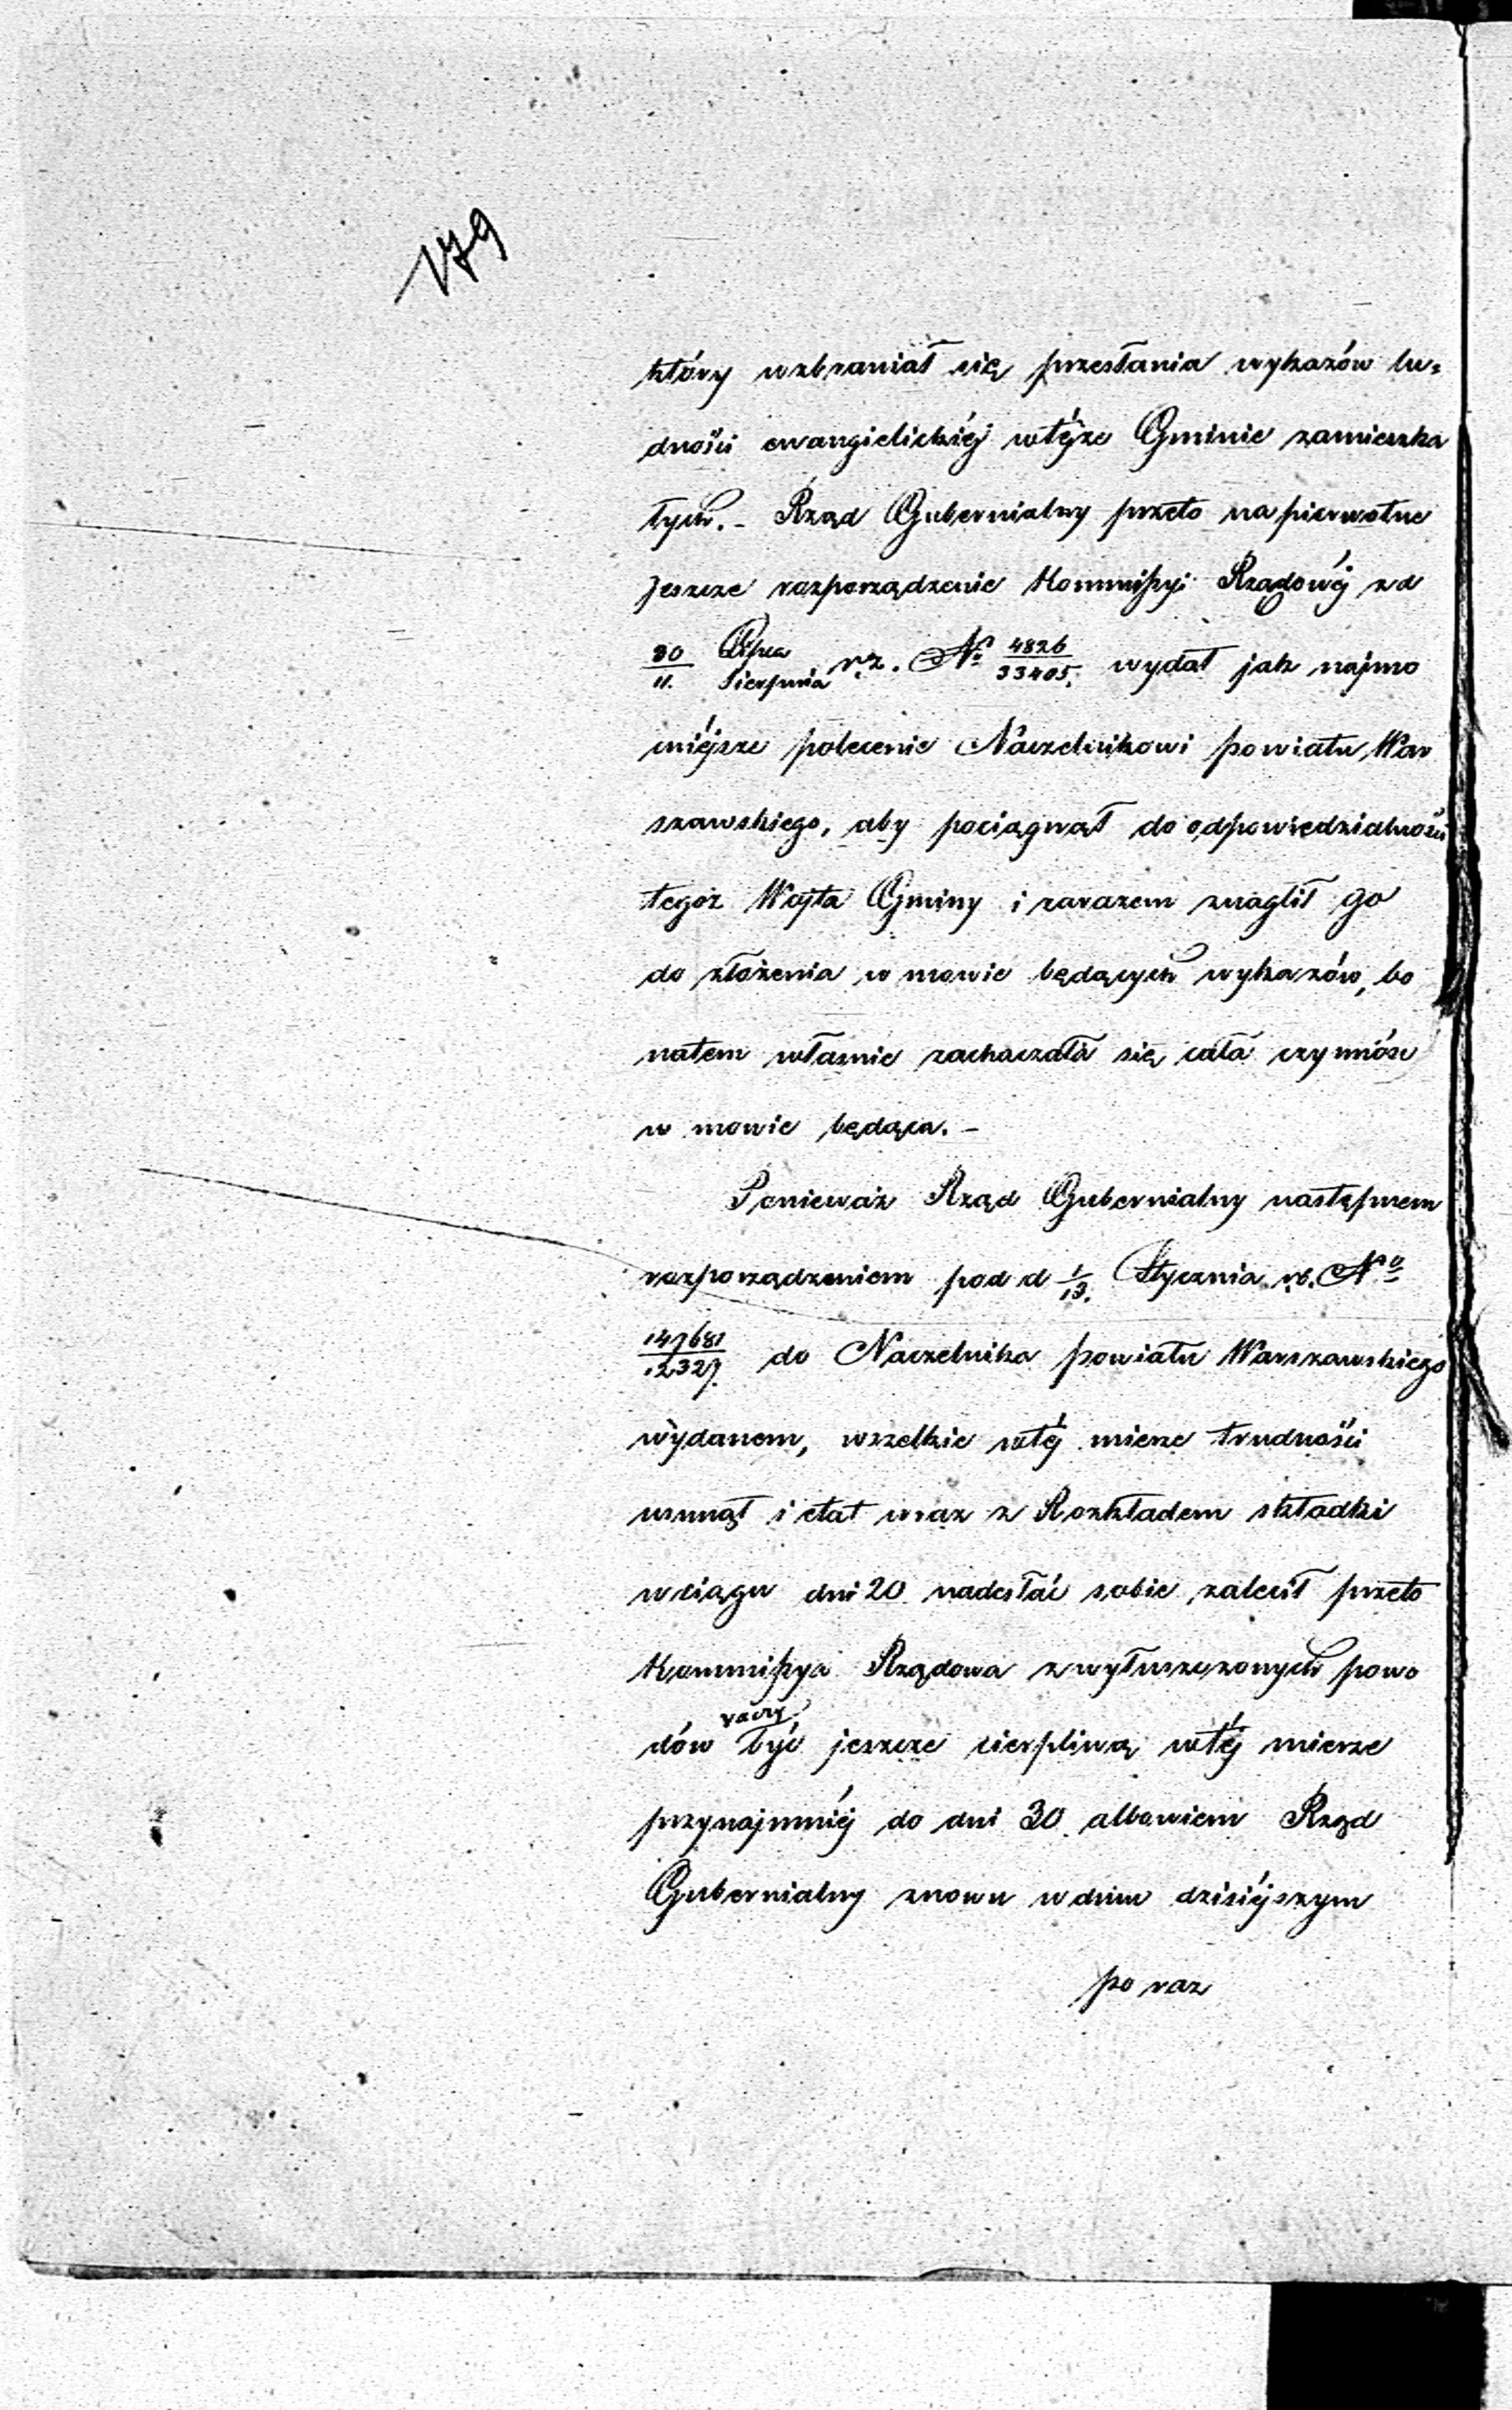 179
który wzbraniał się przesłania wykazów lu=
dności ewangielickiéj wtéjże Gminie zamieszka
łych. – Rząd Gubernialny przeto na pierwotne
jeszcze rozporządzenie Kommissyi Rządowéj z d
30/11. Lipca/Sierpnia r.z. No 4826/33405. wydał jak najmo
cniéjsze polecenie Naczelnikowi powiatu War
szawskiego, aby pociągnął do odpowiedzialności
tegoż Wojta Gminy i zarazem znaglił go
do złożenia w mowie będących wykazów, bo
natem własnie zachaczała się cała czynność
w mowie będąca. –
Ponieważ Rząd Gubernialny następnem
rozporządzeniem pod d 1/13. Stycznia rb. No
147681/12327. do Naczelnika powiatu Warszawskiego
wydanem, wszelkie wtéj mierze trudności
usunął i etat wraz z Rozkładem składki
wciągu dni 20 nadesłać sobie zalecił przeto
Kommissya Rządowa zwyłuszczonych powo
raczy
dów być jeszcze cierpliwą wtéj mierze
przynajmniéj do dni 30 albowiem Rząd
Gubernialny znowu wdniu dzisiéjszym
po raz